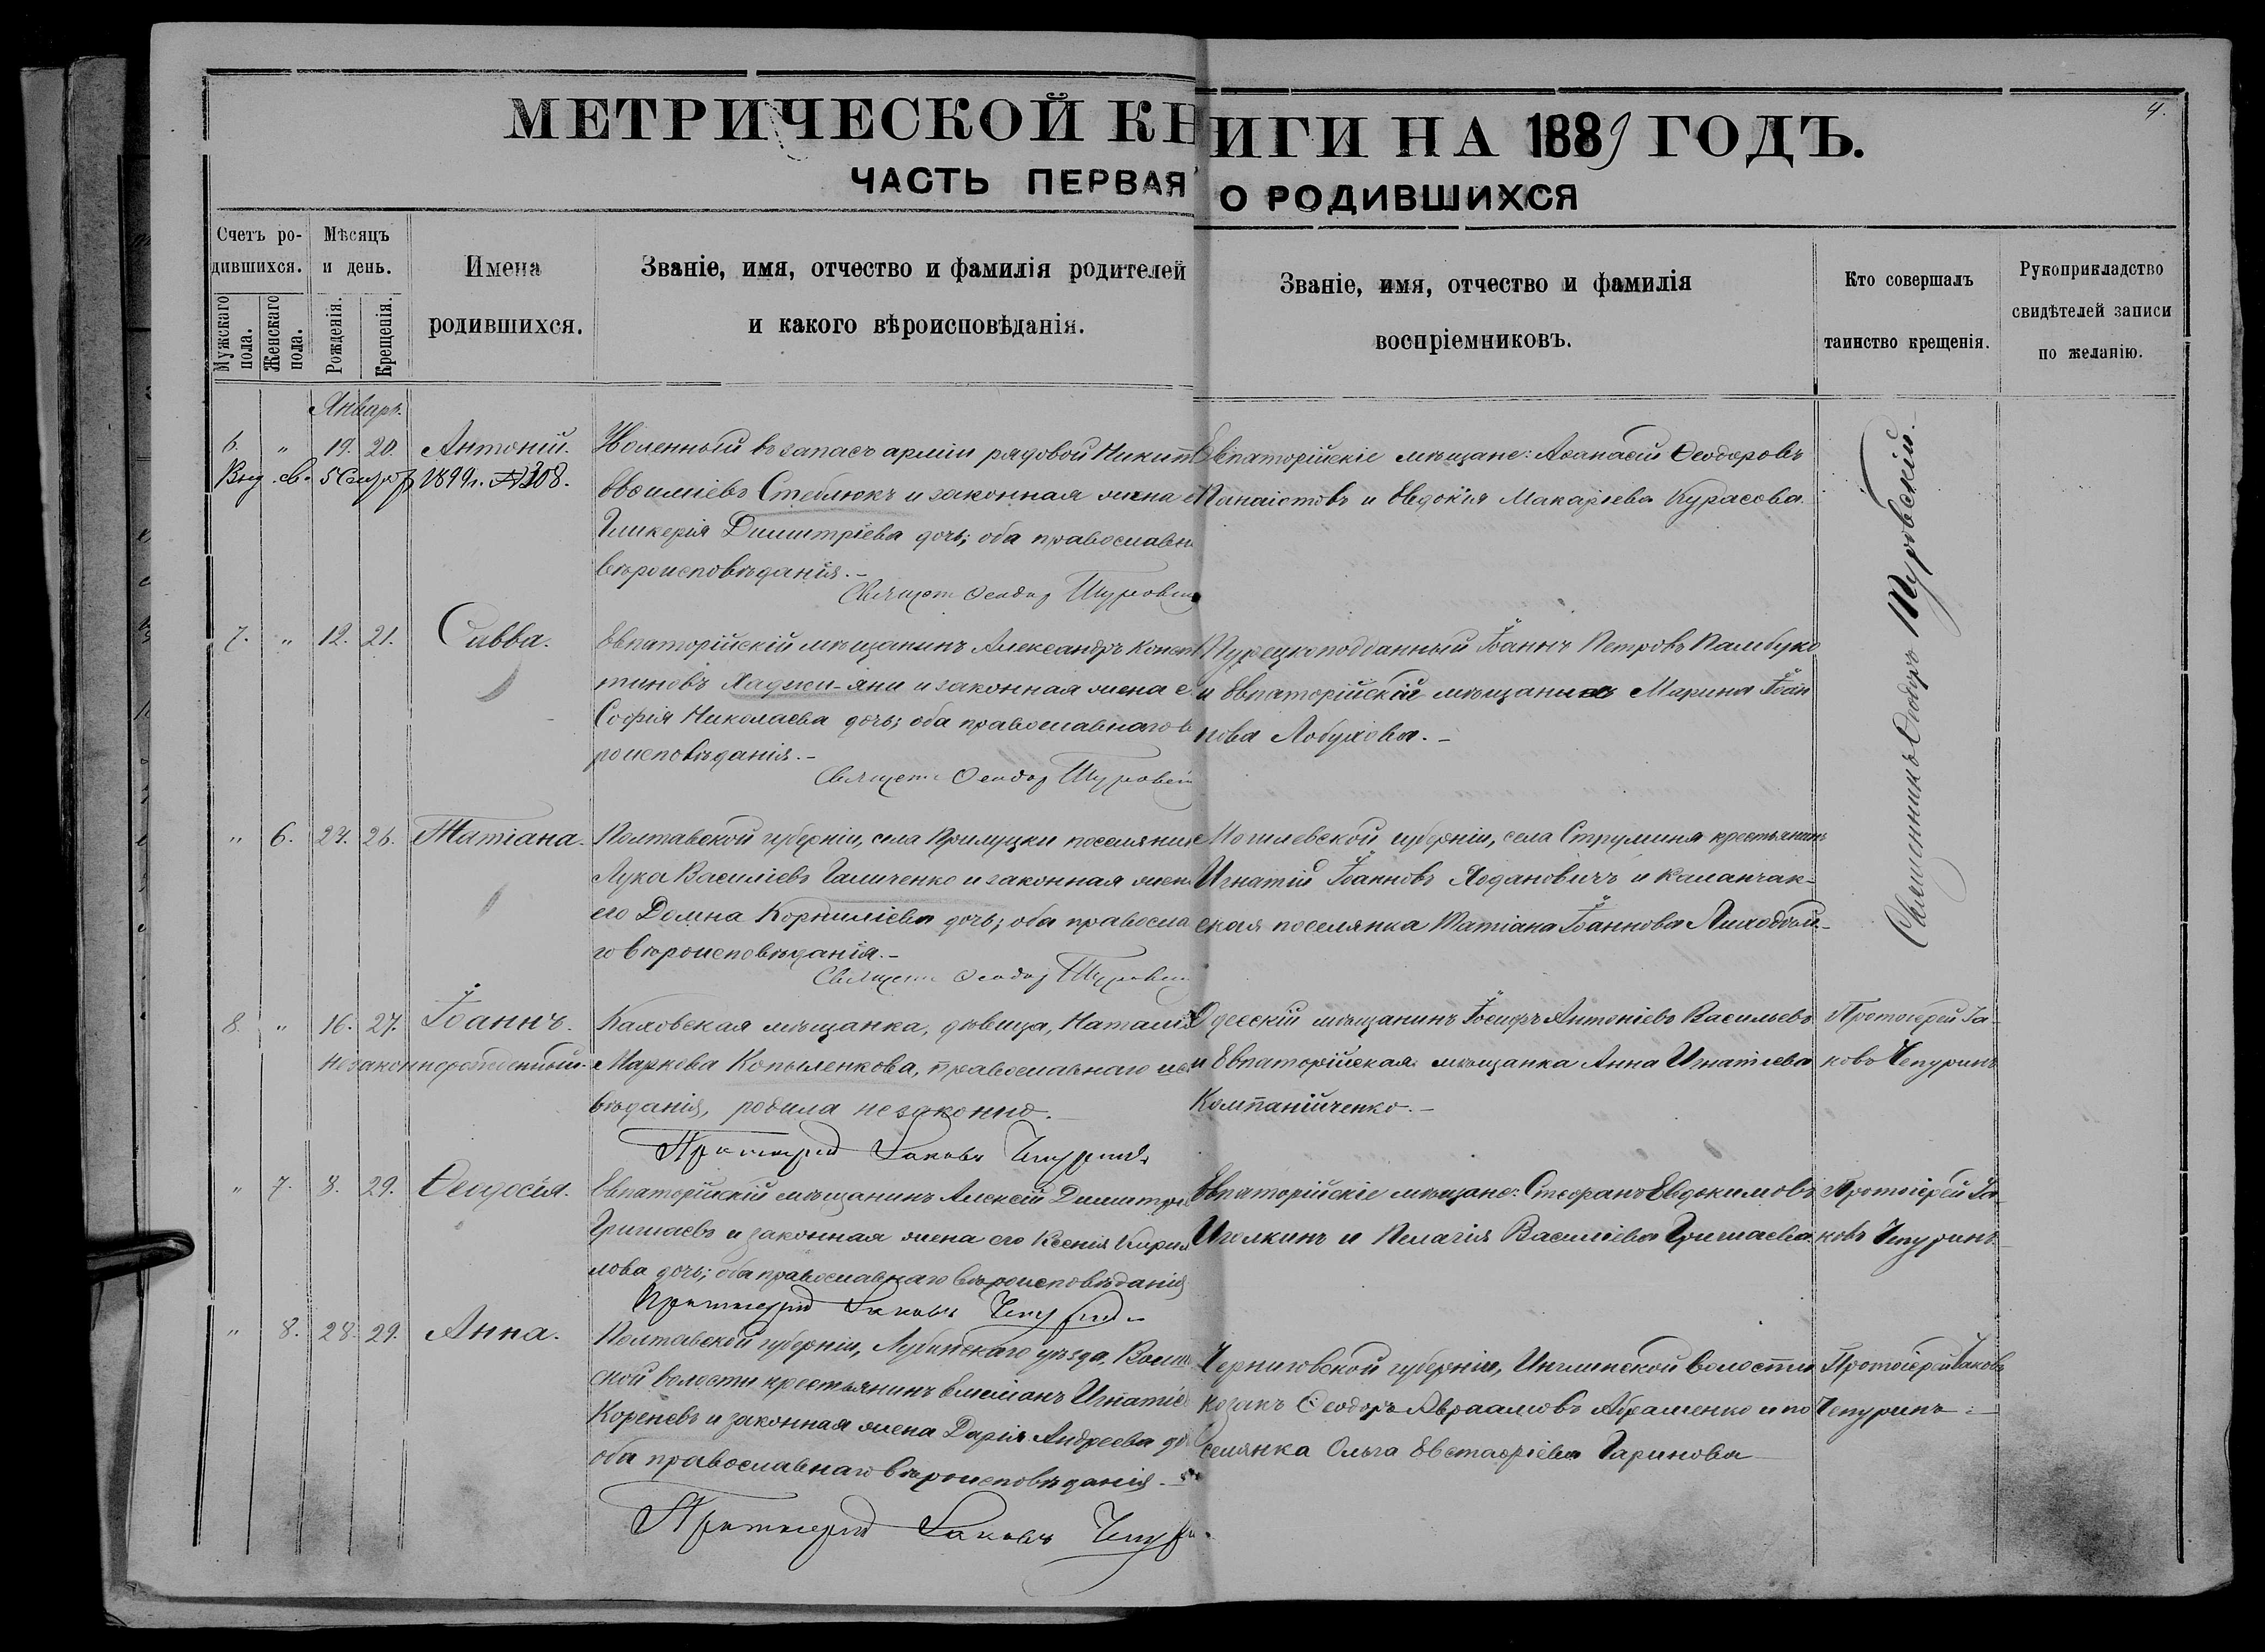 4.
МЕТРИЧЕСКОЙ КНИГИ НА 1889 ГОДЪ.
ЧАСТЬ ПЕРВАЯ О РОДИВШИХСЯ
Счетъ ро-
дившихся.
Мужскаго пола.
Женскаго пола.
Мѣсяцъ
и день.
Рожденія.
Крещенія.
Имена
родившихся.
Званіе, имя, отчество и фамилія родителей
и какого вѣроисповѣданія.
Званіе, имя, отчество и фамилія
воспріемниковъ.
Кто совершалъ
таинство крещенія.
Рукоприкладство
свидѣтелей записи
по желанію.
Январь.
6. " 19. 20. Антоній.
Выд. св. 5 1899 г. № 308.
Уволенный въ запасъ арміи рядовой Никит
Евѳиміевъ Стеблюкъ и законная жена е
Гликерія Димитріева дочь; оба православн
вѣроисповѣданія.-
Священ Ѳеодор Туровск
Евпаторійскіе мѣщане: Аѳанасій Ѳеодоровъ
Панаіотовъ и Евдокія Макаріева Курасова.
Священникъ Ѳеодоръ Туровскій.-
7. " 12. 21. Савва.
Евпаторійскій мѣщанинъ Александръ Конст
тиновъ Хаджи-яни и законная жена е
Софія Николаева дочь; оба православнаго в
роисповѣданія.-
Священ Ѳеодор Туровск
Турецкоподданный Іоаннъ Петровъ Памбуко
и Евпаторійская мѣщанка Марина Іоан
нова Лобухова.-
" 6. 24. 26. Татіана.
Полтавской губерніи, села Прилуцки поселянин
Лука Василіевъ Галиченко и законная жена
его Домна Корниліева дочь; оба правосла
го вѣроисповѣданія.-
Священ Ѳеодор Туровск
Могилевской губерніи, села Струминя крестьянинъ
Игнатій Іоанновъ Ходановичъ и каланчак-
ская поселянка Татіана Іоаннова
8. " 16. 27. Іоаннъ.
Незаконнорожденный.
Каховская мѣщанка, дѣвица, Наталія
Маркова Копыленкова, православнаго испо
вѣданія, родила незаконно.-
Протоіерей Іаковъ Чепуринъ
Одесскій мѣщанинъ Іосифъ Антоніевъ Васильевъ
и Евпаторійская мѣщанка Анна Игнатіева
Компанійченко.-
Протоіерей Іа-
ковъ Чепуринъ
" 7. 8. 29. Ѳеодосія.
Евпаторійскій мѣщанинъ Алексѣй Димитріев
Гришаевъ и законная жена его Ксенія Кирил
лова дочь; оба православнаго вѣроисповѣданія
Протоіерей Іаковъ Чепурин
Евпаторійскіе мѣщане: Стефанъ Евдокимовъ
Иголкинъ и Пелагія Василіева Гришаева
Протоіерей Іа-
ковъ Чепуринъ.
" 8. 28. 29. Анна.
Полтавской губерніи, Лубянскаго уѣзда,
ской волости крестьянинъ Емеліанъ Игнатіев
Кореневъ и законная жена Дарія Андреева до
оба православнаго вѣроисповѣданія.-
Протоіерей Іаковъ Чепури
Черниговской губерніи, волости
козакъ Ѳеодоръ Авраамовъ Абраменко и по
селянка Ольга Евстафіева Гаринова
Протоіерей Іаковъ
Чепуринъ.-